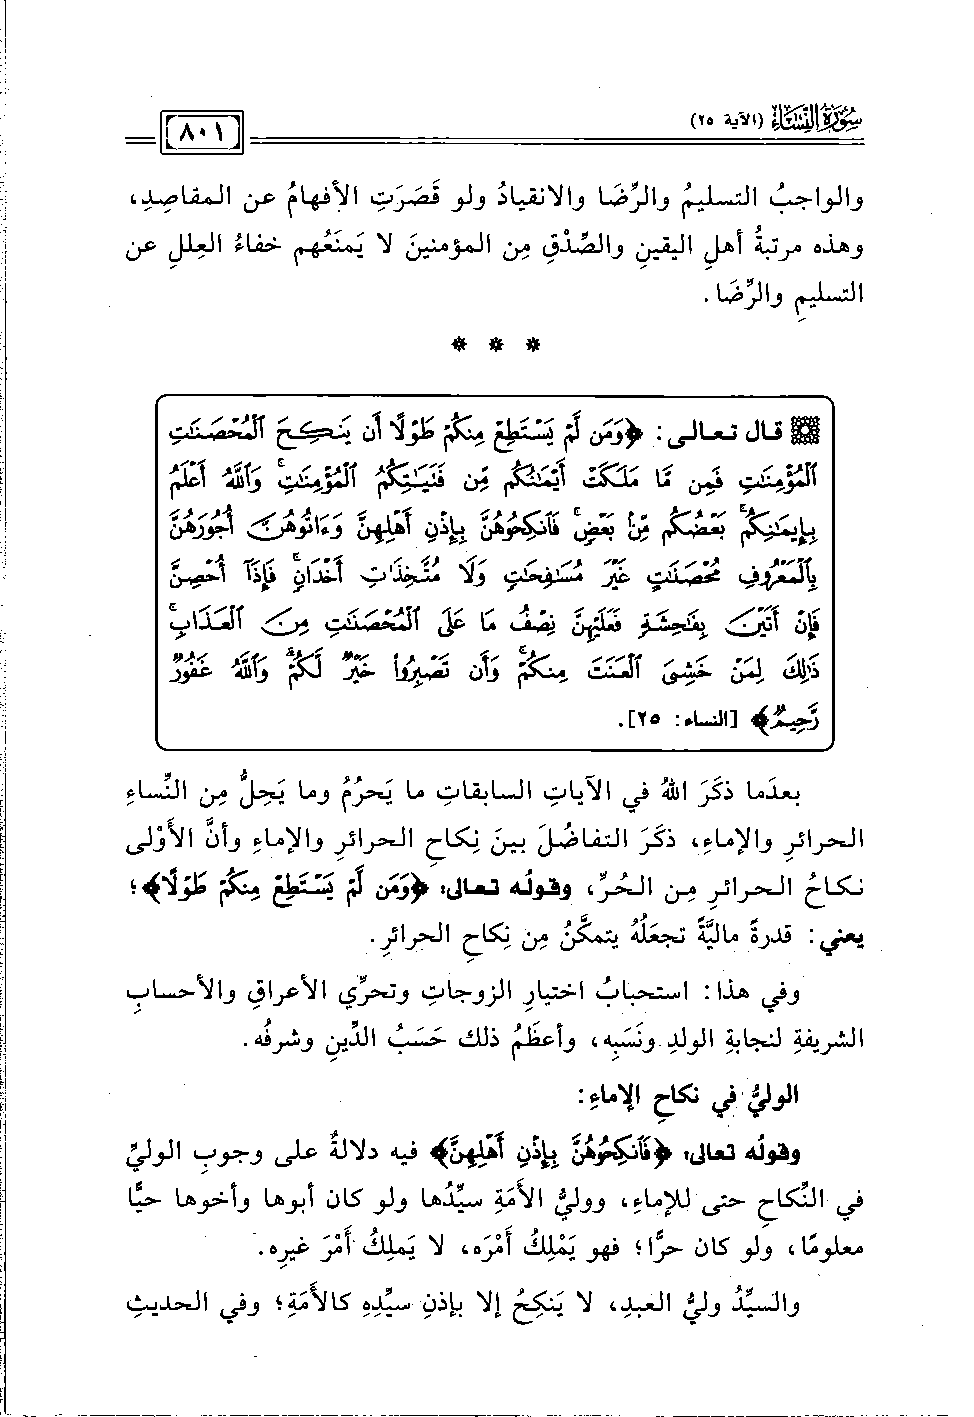 سُورَةُ النِّسَاءِ (الآية ٢٥)
٨٠١
والواجبُ التسليمُ والرِّضَا والانقيادُ ولو قَصَرَتِ الأفهامُ عن المقاصِدِ،
وهذه مرتبةُ أهلِ اليقينِ والصِّدْقِ مِن المؤمنينَ لا يَمنَعُهم خفاءُ العِللِ عن
التسليمِ والرِّضَا.
* * *
قال تعالى: ﴿وَمَن لَّمْ يَسْتَطِعْ مِنكُمْ طَوْلًا أَن يَنكِحَ ٱلْمُحْصَنَٰتِ
ٱلْمُؤْمِنَٰتِ فَمِن مَّا مَلَكَتْ أَيْمَٰنُكُم مِّن فَتَيَٰتِكُمُ ٱلْمُؤْمِنَٰتِ ۚ وَٱللَّهُ أَعْلَمُ
بِإِيمَٰنِكُم ۚ بَعْضُكُم مِّنۢ بَعْضٍ ۚ فَٱنكِحُوهُنَّ بِإِذْنِ أَهْلِهِنَّ وَءَاتُوهُنَّ أُجُورَهُنَّ
بِٱلْمَعْرُوفِ مُحْصَنَٰتٍ غَيْرَ مُسَٰفِحَٰتٍ وَلَا مُتَّخِذَٰتِ أَخْدَانٍ ۚ فَإِذَآ أُحْصِنَّ
فَإِنْ أَتَيْنَ بِفَٰحِشَةٍ فَعَلَيْهِنَّ نِصْفُ مَا عَلَى ٱلْمُحْصَنَٰتِ مِنَ ٱلْعَذَابِ ۚ
ذَٰلِكَ لِمَنْ خَشِىَ ٱلْعَنَتَ مِنكُمْ ۚ وَأَن تَصْبِرُوا۟ خَيْرٌ لَّكُمْ ۗ وَٱللَّهُ غَفُورٌ
رَّحِيمٌ﴾ [النساء: ٢٥].
بعدَما ذكَرَ اللهُ في الآياتِ السابقاتِ ما يَحرُمُ وما يَحِلُّ مِن النِّساءِ
الحرائرِ والإماءِ، ذكَرَ التفاضُلَ بينَ نِكاحِ الحرائرِ والإماءِ وأنَّ الأَوْلى
نكاحُ الحرائرِ مِن الحُرِّ، وقولُه تعالى: ﴿وَمَن لَّمْ يَسْتَطِعْ مِنكُمْ طَوْلًا﴾؛
يعني: قدرةً ماليَّةً تجعَلُهُ يتمكَّنُ مِن نِكاحِ الحرائرِ.
وفي هذا: استحبابُ اختيارِ الزوجاتِ وتحرِّي الأعراقِ والأحسابِ
الشريفةِ لنجابةِ الولدِ ونَسَبِه، وأعظَمُ ذلك حَسَبُ الدِّينِ وشرفُه.
الوليُّ في نكاحِ الإماءِ:
وقولُه تعالى: ﴿فَٱنكِحُوهُنَّ بِإِذْنِ أَهْلِهِنَّ﴾ فيه دلالةٌ على وجوبِ الوليِّ
في النِّكاحِ حتى للإماءِ، ووليُّ الأَمَةِ سيِّدُها ولو كان أبوها وأخوها حيًّا
معلومًا، ولو كان حرًّا؛ فهو يَمْلِكُ أمْرَه، لا يَملِكُ أَمْرَ غيرِه.
والسيِّدُ وليُّ العبدِ، لا يَنكِحُ إلا بإذنِ سيِّدِهِ كالأَمَةِ؛ وفي الحديثِ